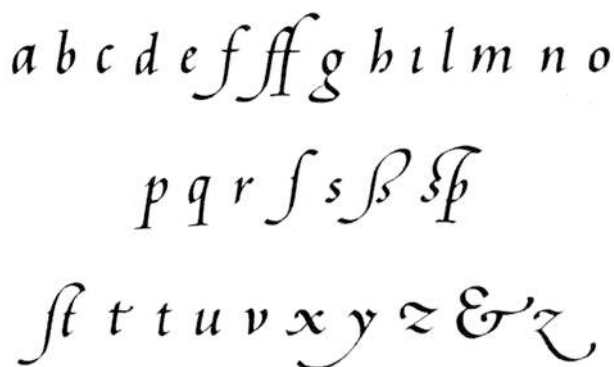 a b c d e f ff g h ı l m n o
p q r ſ s ß sp
ſt t t u v x y z & z